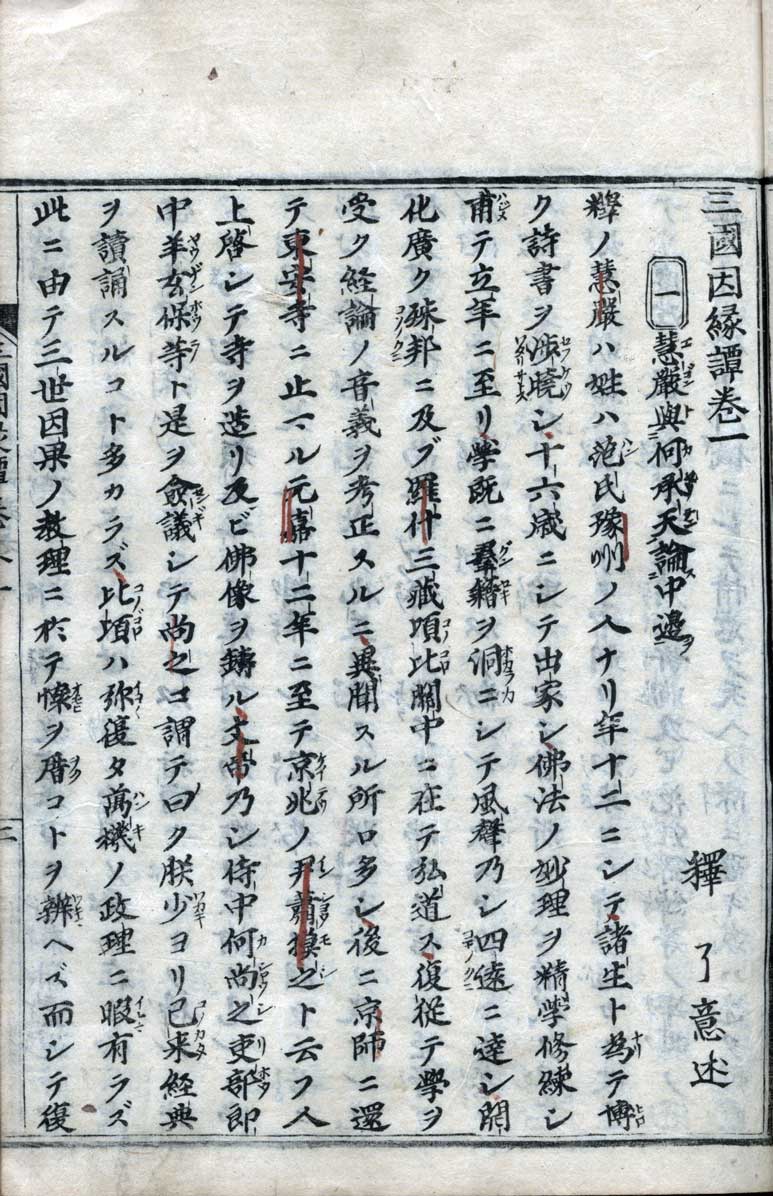 三國因縁譚卷一
釋 了意述
一 慧嚴與何承天論中邊
釋ノ慧嚴ハ姓ハ范氏豫州ノ人ナリ年十二ニシテ諸生ト爲テ博
ク詩書ヲ渉曉シ十六歳ニシテ出家シ佛法ノ妙理ヲ精學修練シ
甫テ立年ニ至リ學既ニ羣籍ヲ洞ニシテ風聲乃シ四遠ニ達シ
化廣ク殊邦ニ及ブ羅什三藏項比關中ニ在テ弘道ス復從テ學ヲ
受ク経論ノ音義ヲ考正スルニ異聞スル所ロ多シ後ニ京師ニ還
テ東安寺ニ止マル元嘉十二年ニ至テ京兆ノ尹蕭摸之ト云フ人
上啓シテ寺ヲ造リ及ビ佛像ヲ鑄ル文帝乃シ侍中何尚之吏部郎
中羊玄保等ト是ヲ僉議シテ尚之ニ謂テ曰ク朕少ヨリ已来経典
ヲ讀誦スルコト多カラズ比頃ハ弥復タ萬機ノ政理ニ暇有ラズ
此ニ由テ三世因果ノ教理ニ於テ懐ヲ厝コトヲ辨ヘズ而シテ復